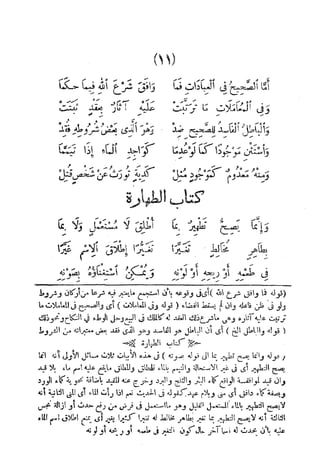 (١١)
أَمَّا الصَّحِيحُ فِي الْعِبَادَاتِ فَمَا وَافَقَ شَرْعَ اللهِ فِيمَا حَكَمَا
وَفِي الْمُعَامَلَاتِ مَا تَرَتَّبَتْ عَلَيْهِ آثَارٌ بِعَقْدٍ ثَبَتَتْ
وَالْبَاطِلُ الْفَاسِدُ لِلصَّحِيحِ ضِدْ وَهْوَ الَّذِي بَعْضُ شُرُوطِهِ فُقِدْ
وَاسْتَثْنِ مَوْجُودًا كَمَا لَوْ عُدِمَا كَوَاجِدِ الْمَاءِ إِذَا تَيَمَّمَا
وَمِنْهُ مَعْدُومٌ كَمَوْجُودٍ مُثِلْ كَدِيَةٍ تُورَثُ عَنْ شَخْصٍ قُتِلْ
كتاب الطهارة
وَإِنَّمَا يَصِحُّ تَطْهِيرٌ بِمَا أُطْلِقَ لَا مُسْتَعْمَلٍ وَلَا بِمَا
بِطَاهِرٍ مُخَالِطٍ تَغَيَّرَا تَغَيُّرًا إِطْلَاقَ الِاسْمِ غَيَّرَا
فِي طَعْمِهِ أَوْ رِيحِهِ أَوْ لَوْنِهِ وَيُمْكِنُ اسْتِغْنَاؤُهُ بِصَوْنِهِ
(قوله فما وافق شرع الله) أى فى وقوعه بأن استجمع ما يعتبر فيه شرعا من أركان وشروط
ولو فى ظن فاعله وان لم يسقط القضاء (قوله وفى المعاملات) أى والصحيح فى المعاملات ما
ترتبت عليه آثاره وهى ما شرع ذلك العقد له كالملك فى البيع وحل الوطء فى النكاح ونحو ذلك
(قوله والباطل الخ) أى أن الباطل هو الفاسد وهو الذى فقد بعض معتبراته من الشروط
كتاب الطهارة
(قوله وانما يصح تطهير بما الى قوله صونه) فى هذه الأبيات ثلاث مسائل الأولى أنه انما
يصح التطهير أى فى غير الاستحالة والتيمم بماء مطلق والمطلق مايقع عليه اسم ماء بلا قيد
وان قيد لموافقة الواقع كماء البئر والثلج والبرد وخرج عنه المقيد باضافة نحوية كماء الورد
وبصفة كماء دافق أى منى وبلام عهد كقوله فى الحديث نعم اذا رأت الماء أى المنى الثانية أنه
لايصح التطهير بالماء المستعمل القليل وهو ما استعمل فى فرض من رفع حدث أو ازالة نجس
الثالثة أنه لايصح التطهير بما تغير بطاهر مخالط له تغيرا كثيرا يغير أى يمنع اطلاق اسم الماء
عليه بأن يحدث له اسما آخر حال كون التغير فى طعمه أو ريحه أو لونه